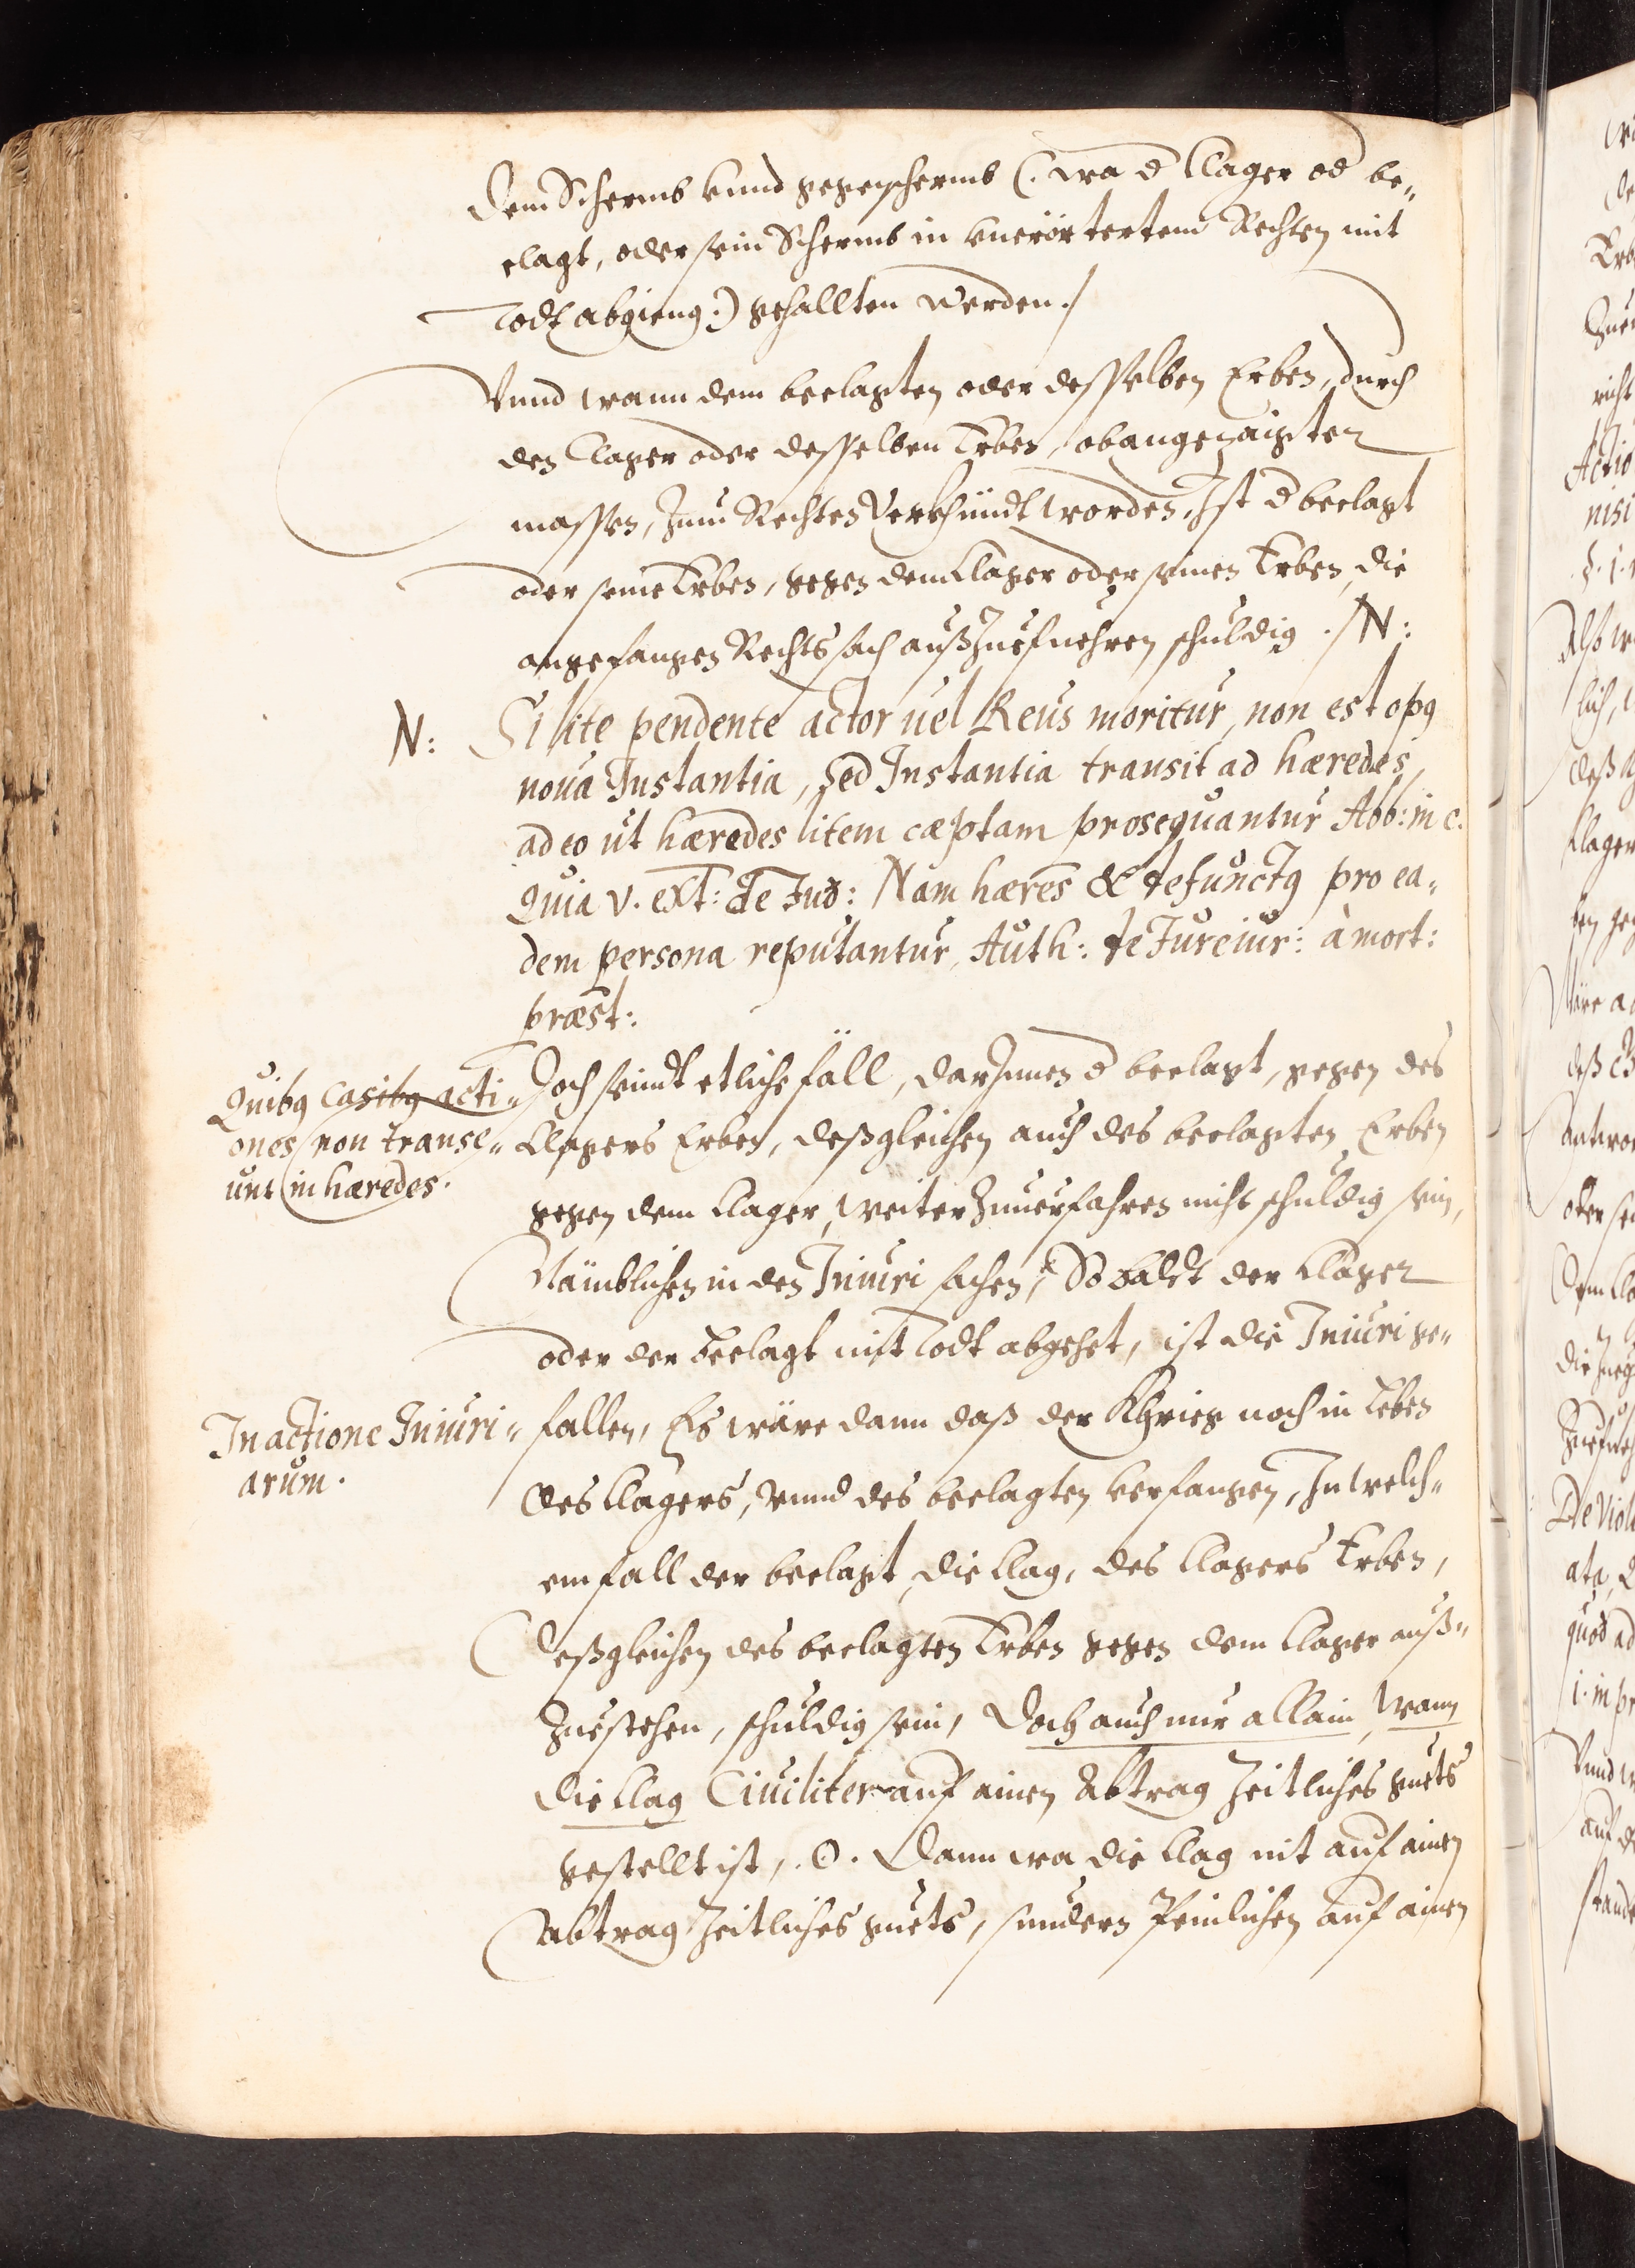 dem Schermb vnnd gegenschermb (: wa d Clager od be„
clagt, oder sein Schermb in vnerörtertem Rechten mit
Todt abgieng :) gehallten werden ./
Vnnd wann dem beclagten oder desselben Erben, durch
den Clager oder desselben Erben, obangezaigter
massen, zum Rechten Verkhündt worden, Ist d beclagt
oder seine Erben, gegen dem Clager oder seinen Erben, die
angefangen Rechtssach außzuefuehren schuldig ./ N:
N: Si lite pendente actor uel Reus moritur, non est opq
noua Instantia, sed Instantia transit ad hæredes,
adeo ut hæredes litem cæptam prosequantur Abb: in c.
Quia v. ext: de Jud: Nam hæres & defunctq pro ea„
dem persona reputantur, Auth: de Jureiur: à mort:
præst:
Quibq casibq acti„
ones non transe„
unt in hæredes.
Doch seindt etliche fäll, darInnen d beclagt, gegen des
Clagers Erben, deßgleichen auch des beclagten Erben
gegen dem Clager, weiter Zuuerfahren nicht schuldig sein,
Nämblichen in den Iniuri sachen, So baldt der Clager
oder der beclagt mit Todt abgehet, ist die Iniuri ge„
In actione Iniuri„
arum.
fallen, Es wäre dann daß der Khrieg noch in Leben
des Clagers, vnnd des beclagten verfangen, In welch„
em fall der beclagt, die Clag, des Clagers Erben,
deßgleichen des beclagten Erben gegen dem Clager auß„
zuestehen, schuldig sein, Doch auch nur allain, wann
die Clag Ciuiliter auf ainen Abtrag Zeitliches guets
gestellt ist, . O . Dann wa die Clag nit auf ainen
Abtrag Zeitliches guets, sundern Peinlichen auf ainen